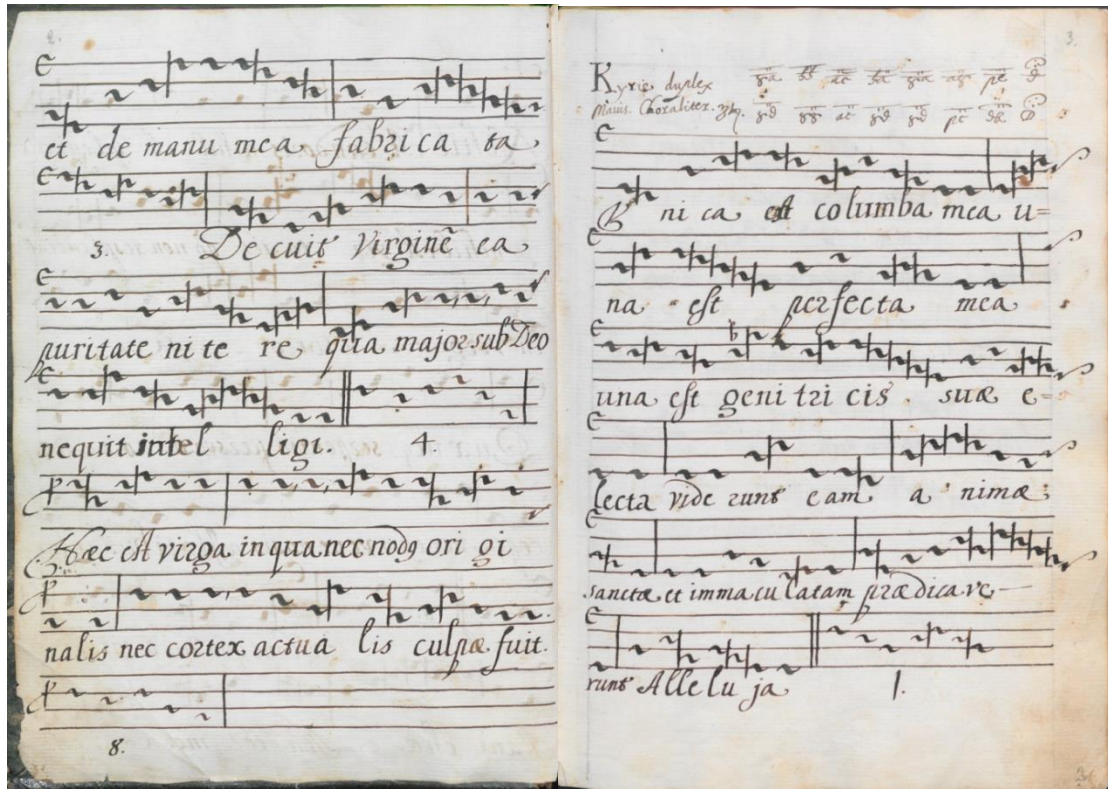 2.
et de manu mea fabrica ta
3. Decuit Virginē ea
puritate nite re qua major sub Deo
nequit intel ligi. 4.
Hæc est virga in qua nec nodg origi
nalis nec cortex actua lis culpæ fuit.
8.
3.
Kyrie duplex
Choraliter.
nica est columba mea u=
na est perfecta mea
una est genitricis suæ e-
lecta viderunt eam animæ
sanctæ et immaculatam prædicave-
runt Alleluja 1.